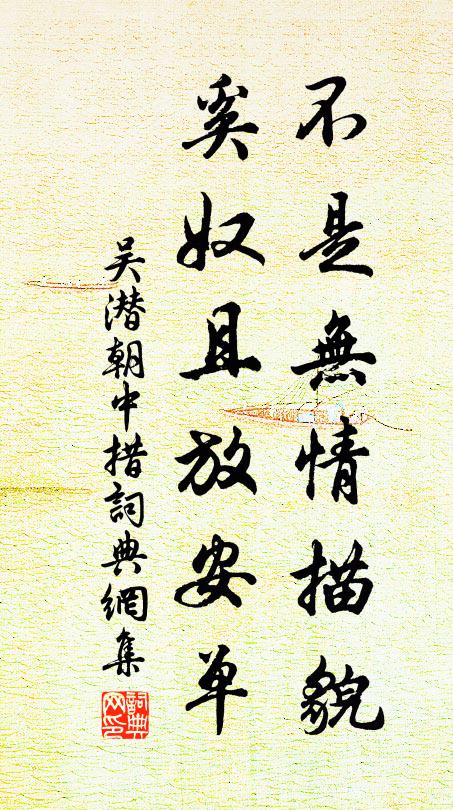 不是無情描貌
奚奴且放安单
吴潜朝中措詞典網集
詞典網印